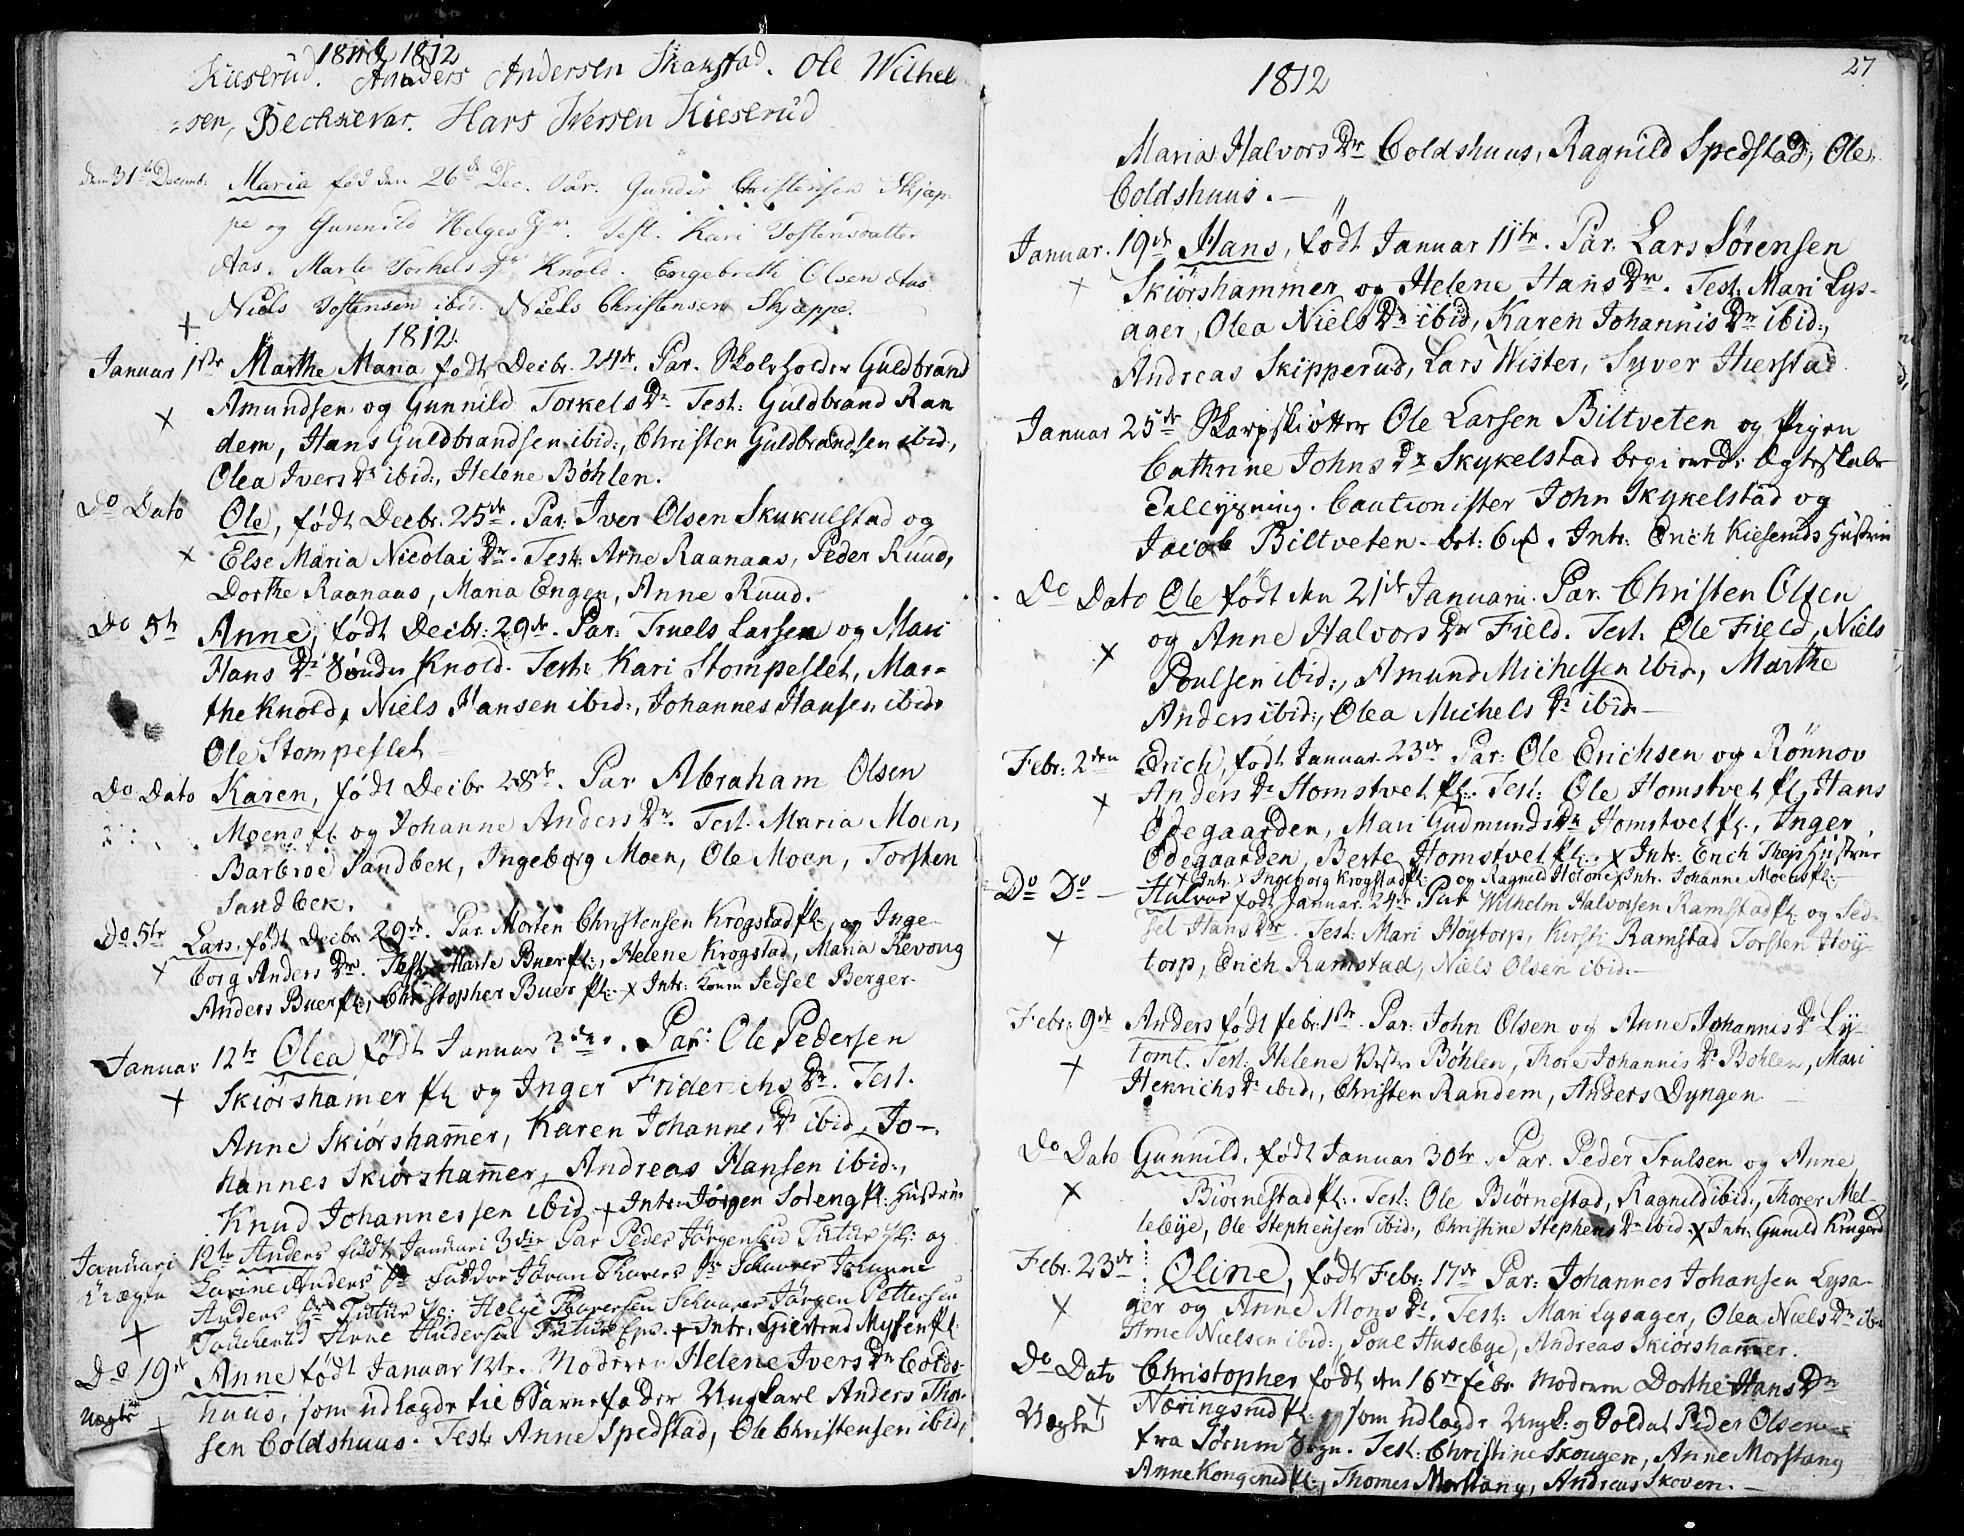 1811 & 1812
Kieserud. Anders Andersen Skakstad. Ole Wilhel
=sen, Bechnevar. Hans Iversen Kieserud
den 31te Decemb: Maria fød den 26de Dec. Par. Gunder Christensen Skjæp-
pe og Gunnild Helges Dr. Test. Kari Tostensdatter
Aas. Marte Torkels Dr Knold. Engebreth Olsen Aas
Niels Tostensen ibid. Niels Christensen Skjæppe.
1812.
Januar 1ste Marthe Maria født Decbr. 24de. Par. Skoleholder Guldbrand
Amundsen og Gunnild Torkels Dr. Test: Guldbrand Ran
dem, Hans Guldbrandsen ibid:, Christen Guldbrandsen ibid:,
Olea Ivers Dr ibid:, Helene Bøhlen.
Do Dato Ole, født Decbr. 25de. Par: Iver Olsen Skukulstad og
Else Maria Nicolai Dr. Test: Arne Raanaas, Peder Ruud,
Dorthe Raanaas, Maria Engen, Anne Ruud.
Do 5te Anne, født Decbr: 29de. Par: Truels Larsen og Mari
Hans Dr Sønder Knold. Test: Kari Stompeslet, Mar=
the Knold, Niels Hansen ibid:, Johannes Hansen ibid:
Ole Stompeslet
Do Dato Karen, født Decbr 28de. Par Abraham Olsen
Moens fl. og Johanne Anders Dr. Test. Maria Moen,
Barbroe Sandbek, Ingeborg Moen, Ole Moen, Torsten
Sandbek.
Do 5te Lars, født Decbr 29de. Par. Morten Christensen Krogstad fl., og Inge-
borg Anders Dr. Test: Marte Buer fl:, Helene Krogstad, Maria Revoug
Anders Buer fl:, Christopher Buer fl: x Intr: Konen Sedsel Berger.
Januar 12te Olea født Januar 3de. Par: Ole Pedersen
Skiørshamer fl og Inger Friderichs Dr. Test.
Anne Skiørshammer, Karen Johannes Dr ibid, Jo-
hannes Skiørshammer, Andreas Hansen ibid:,
Knud Johannessen ibid + Intr: Jørgen Søteng fl: Hustrue
Januari 12te Anders født Januari 3die Par Peder Jørgensen Tutur fl: og
Uægte Karine Anders Dr Faddre Jøran Thorers Dr Schaarer Johanne
Anders Dr Tutur fl: Helge Thorersen Schaarer Jørgen Pettersen
Arne Andersen Tutur Eps. + Intr: Giertrud Mysen fl.
Do 19de Anne født Januar 12te. Moderen Helene Ivers Dr Colds=
Uægte huus, som udlagde til Barnefader Ungkarl Anders Tho-
sen Coldshuus. Test: Anne Spedstad, Ole Christensen ibid,
27
1812
Maria Halvors Dr Coldshuus, Ragnild Spedstad, Ole
Coldshuus.
Januar. 19de Hans, født Januar 11te. Par. Lars Sørensen
Skiørshammer og Helene Hans Dr. Test: Mari Lys-
ager, Olea Niels Dr ibid, Karen Johannis Dr ibid:,
Andreas Skipperud, Lars Wister, Syver Hierstad
Januar 25de Skarpskiøtter Ole Larsen Biltveten og Pigen
Cathrine Johns Dr Skykelstad begierede Ægteskabs
Tillysning. Cautionister John Skykelstad og
Jacob Biltveten. bet: 6 ß. Intr: Erich Kieseruds Hustrue
Do Dato Ole født den 21de Januarii. Par. Christen Olsen
og Anne Halvors Dr Field. Test: Ole Field, Niels
Poulsen ibid:, Amund Michelsen ibid, Marthe
Anders ibid:, Olea Michels Dr ibid
Febr: 2den Erich, født Januar 23de Par: Ole Erichsen og Rønnov
Anders Dr Homstvet fl:. Test: Ole Homstvet fl, Hans
Ødegaarden, Mari Gudmunds Dr Homstvet fl., Inger
Ødegaarden, Berte Homstvet fl:. x Intr: Erich Theis Hustrue
x Intr. Ingeborg Krogstad fl: og Ragnild Holone x Intr. Johanne Moens fl:
Do Do Halvor født Januar 24de Par Wilhelm Halvorsen Ramstad fl: og Sed-
sel Hans Dr. Test: Mari Høytorp, Kirsti Ramstad Torsten Høy-
torp, Erich Ramstad, Niels Olsen ibid:
Febr: 9de Anders født febr: 1ste. Par: John Olsen og Anne Johannis Dr Ly-
tomt. Test: Helene Bøhlen, Thore Johannis Dr Bøhlen, Mari
Henrichs Dr ibid:, Christen Randem, Anders Dyngen
Do Dato Gunnild, født Januar 30te. Par. Peder Trulsen og Anne
Biørnestad fl:. Test: Ole Biørnestad, Ragnild ibid:, Thorer Mel-
lebye, Ole Stephensen ibid:, Christine Stephens Dr ibid. x Intr: Gunild Krugerd
Febr. 23de Oline, født Febr: 17de Par: Johannes Johansen Lysa-
ger og Anne Mons Dr. Test: Mari Lysager, Olea Niels Dr ibid
Arne Nielsen ibid:, Poul Husebye, Andreas Skiørshammer.
Do Dato Christopher født den 16de Febr Moderen Dorthe Hans Dr
Uægte Næringsrud fl: som udlagde Ungk: og Soldat Peder Olsen
fra Sørum Sogn. Test: Christine Skougen, Anne Morstang
Anne Kongerud fl:, Thomes Morstang, Andreas Skoven.